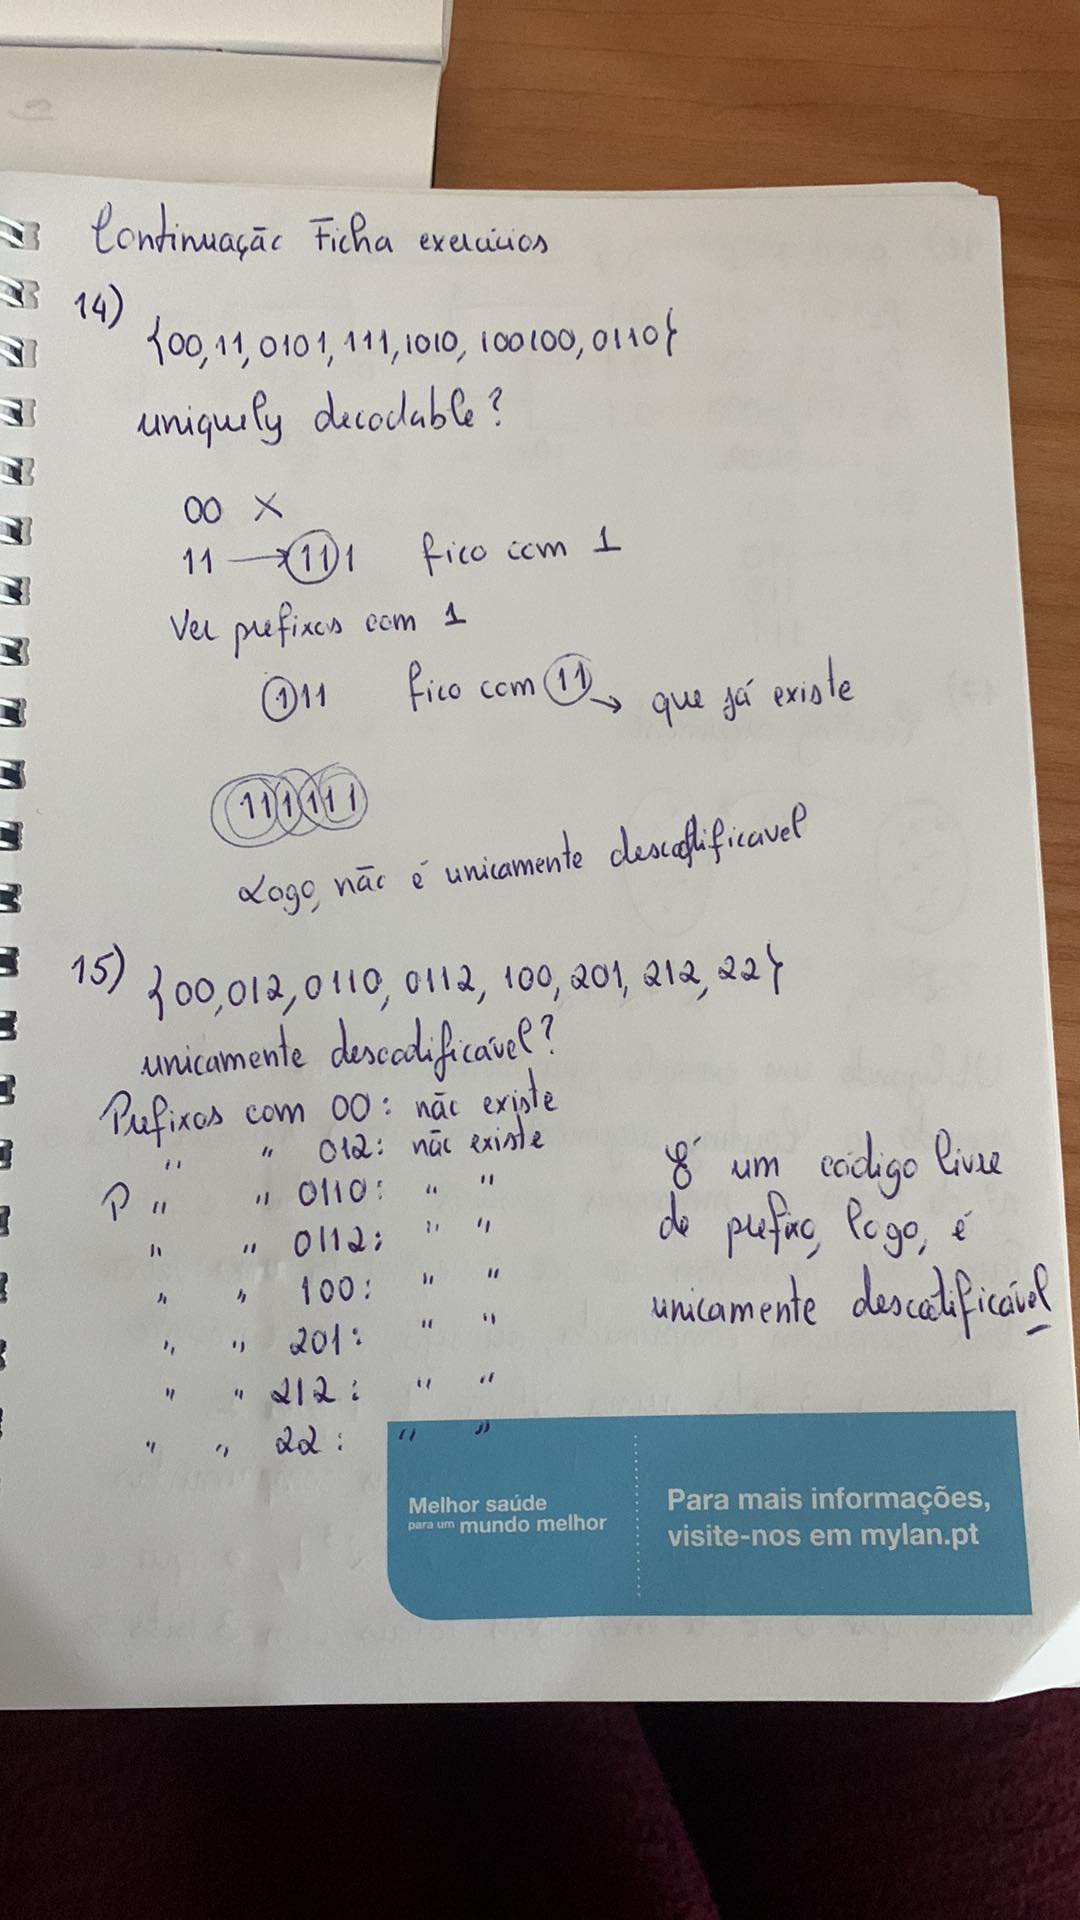 Continuação Ficha exercícios
14)
{00,11,0101,111,1010,100100,0110}
uniquely decodable?
00 X
11 → 111 fico com 1
Ver prefixos com 1
111 fico com 11 → que já existe
111111
Logo, não é unicamente descodificavel
15) {00,012,0110,0112,100,201,212,22}
unicamente descodificável?
Prefixos com 00: não existe
" " 012: não existe
P " " 0110: " "
" " 0112: " "
" " 100: " "
" " 201: " "
" " 212: " "
" " 22: " "
É um código livre
de prefixo, logo, é
unicamente descodificável
Melhor saúde
para um mundo melhor
Para mais informações,
visite-nos em mylan.pt